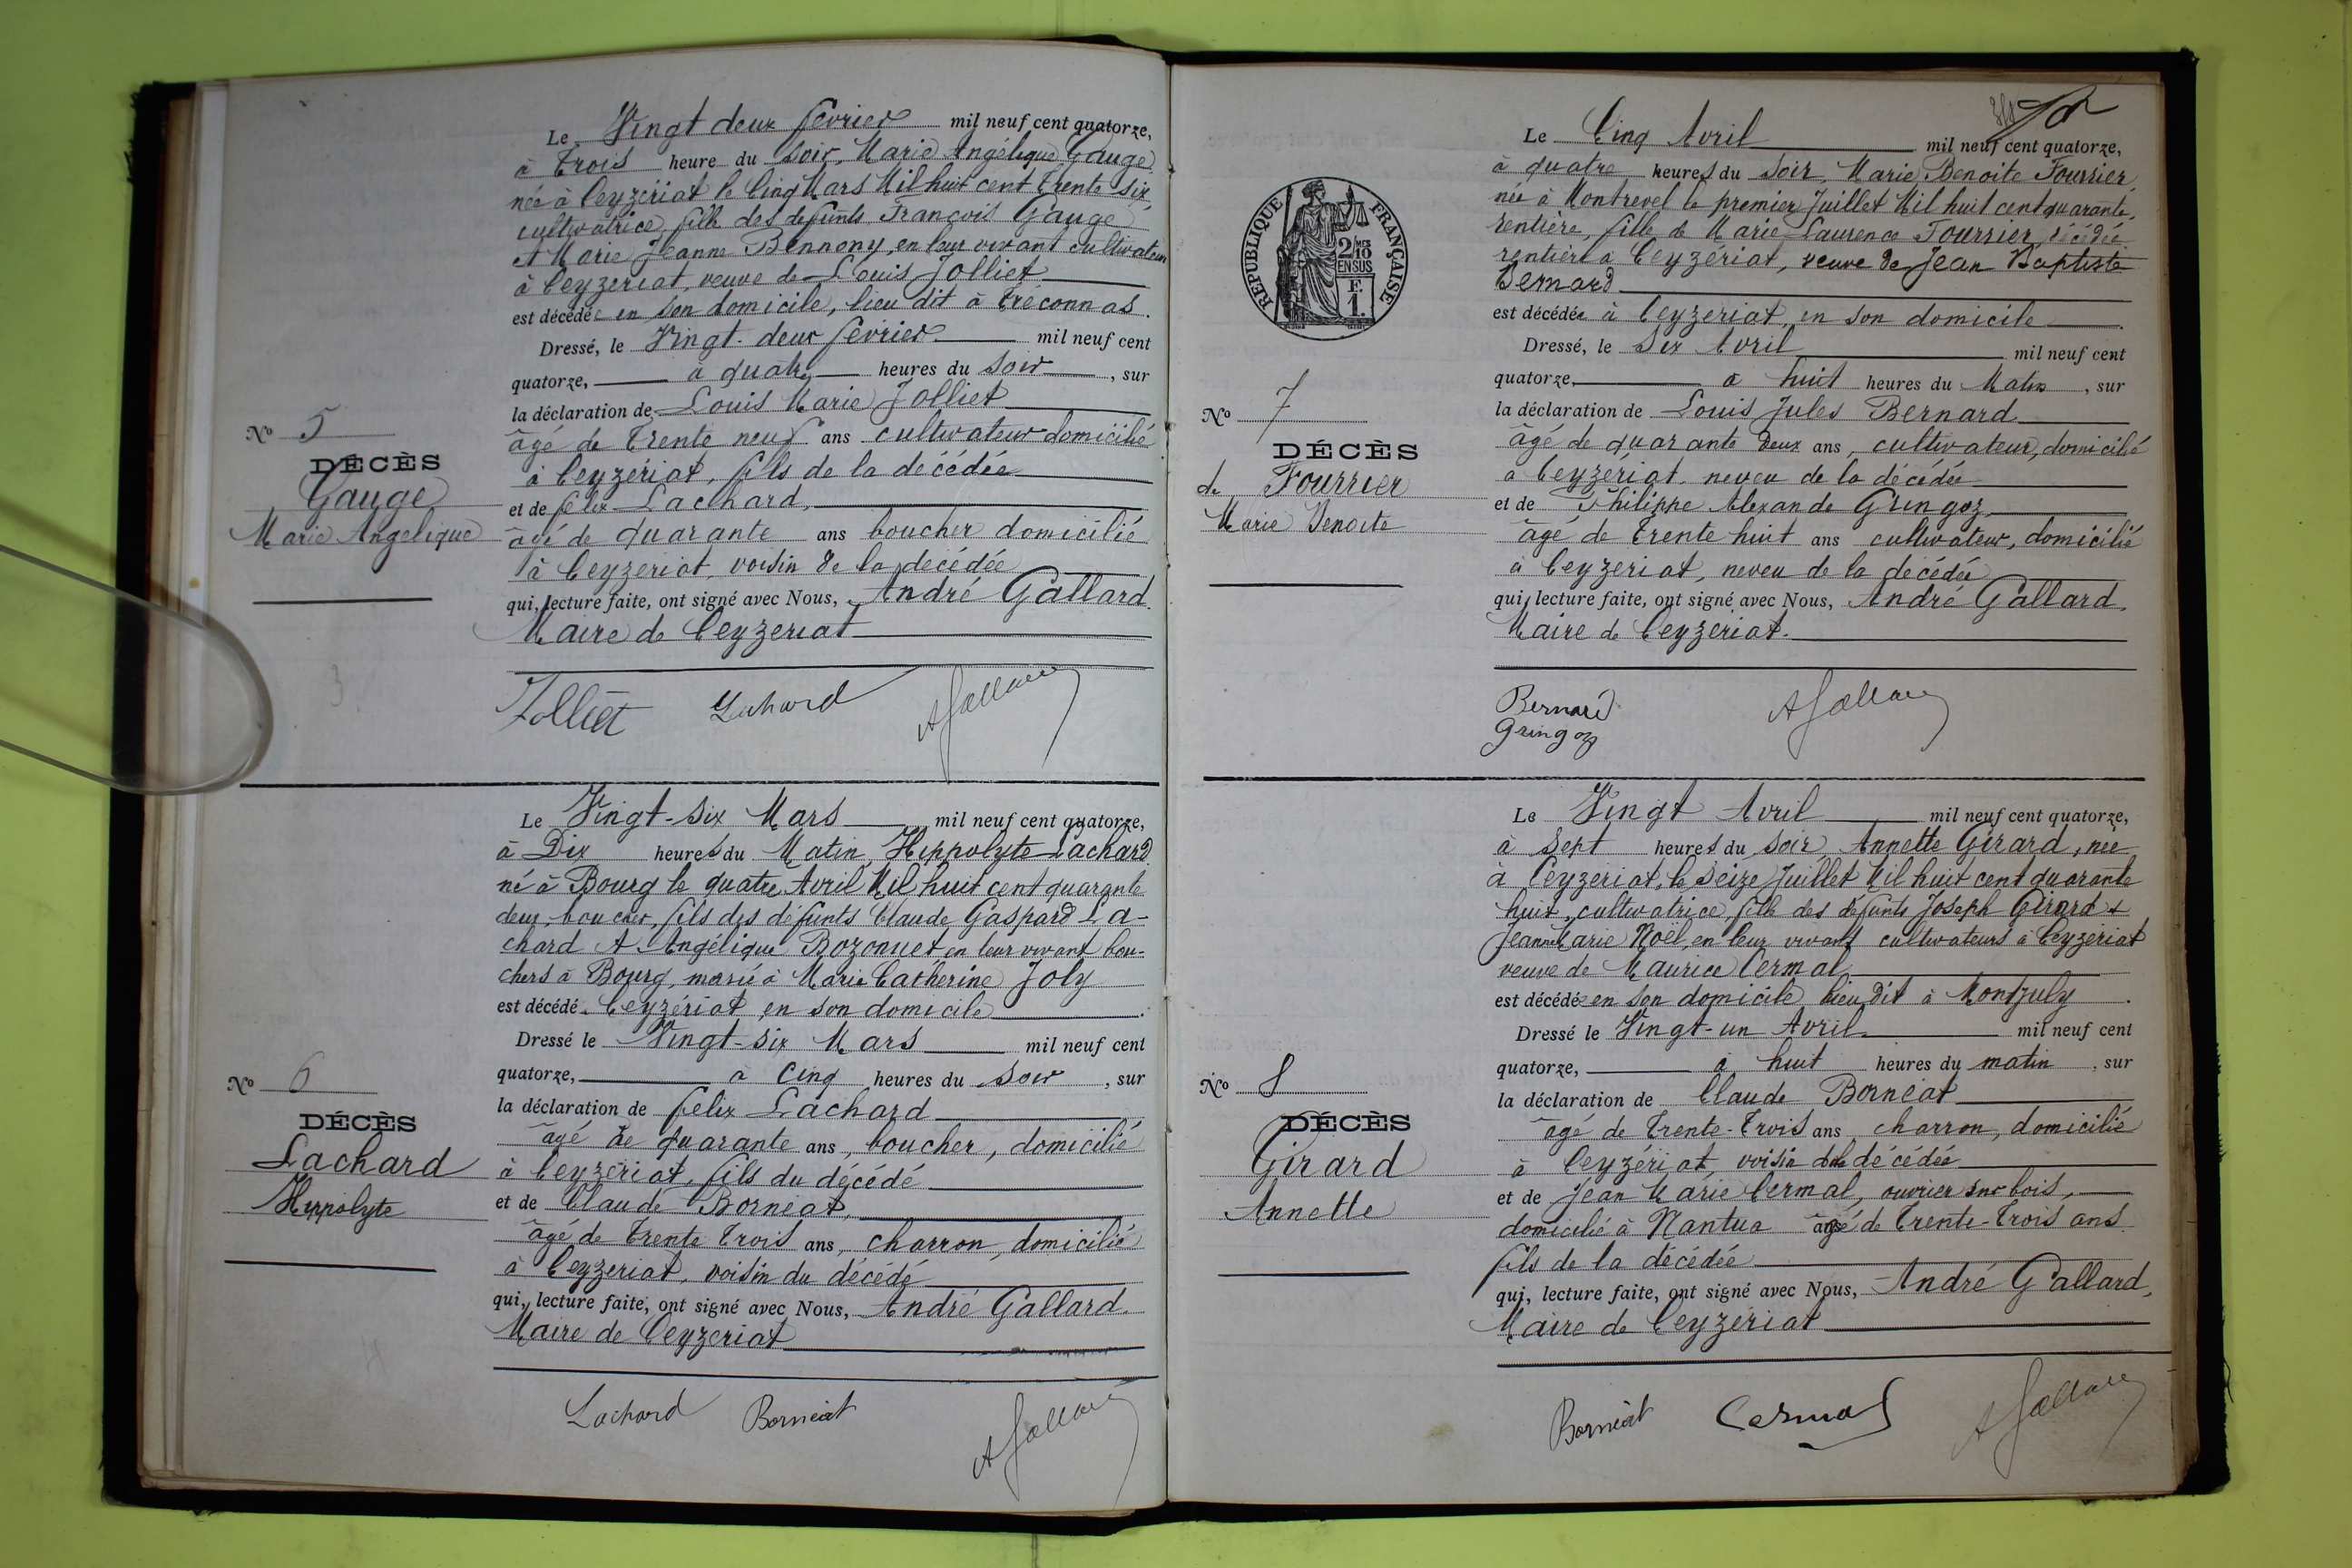 Le Vingt deux février mil neuf cent quatorze,
à trois heure du soir, Marie Angélique Gauge
née à Ceyzériat le Cinq Mars Mil huit cent trente six,
cultivatrice, fille des défunts François Gauge
et Marie Jeanne Bennony, en leur vivant cultivateurs
à Ceyzeriat, veuve de Louis Jolliet
est décédée en son domicile, lieu dit à Tréconnas.
Dressé, le Vingt-deux février mil neuf cent
quatorze, à quatre heures du soir, sur
la déclaration de Louis Marie Jolliet
âgé de trente neuf ans cultivateur domicilié
à Ceyzériat, fils de la décédée
et de félix Lachard,
âgé de quarante ans boucher domicilié
à Ceyzeriat, voisin de la décédée
qui, lecture faite, ont signé avec Nous, André Gallard.
Maire de Ceyzeriat
Jolliet Lachard AGallard
No 5
DÉCÈS
Gauge
Marie Angelique
3
Le Vingt-six Mars mil neuf cent quatorze,
à Dix heures du Matin, Hippolyte Lachard
né à Bourg le quatre Avril Mil huit cent quarante
deux, boucher, fils des défunts Claude Gaspard La-
chard et Angélique Bozonnet en leur vivant bou-
chers à Bourg, marié à Marie Catherine Joly
est décédé Ceyzériat, en son domicile.
Dressé le Vingt-six Mars mil neuf cent
quatorze, à Cinq heures du soir, sur
la déclaration de félix Lachard
âgé de quarante ans, boucher, domicilié
à Ceyzériat, fils du décédé
et de Claude Bornéat,
âgé de trente trois ans, charron, domicilié
à Ceyzeriat, voisin du décédé
qui, lecture faite, ont signé avec Nous, André Gallard.
Maire de Ceyzeriat
Lachard Bornéat AGallard
No 6
DÉCÈS
Lachard
Hyppolyte
Le Cinq Avril mil neuf cent quatorze,
à quatre heures du soir, Marie Benoite Fourrier,
née à Montrevel le premier Juillet Mil huit cent quarante,
rentière, fille de Marie Laurence Fourrier, décédée
rentière à Ceyzériat, veuve de Jean Baptiste
Bernard
est décédée à Ceyzeriat, en son domicile.
Dressé, le Six Avril mil neuf cent
quatorze, à huit heures du Matin, sur
la déclaration de Louis Jules Bernard
âgé de quarante deux ans, cultivateur, domicilié
à Ceyzériat, neveu de la décédée
et de Philippe Alexande Gringoz
âgé de trente huit ans cultivateur, domicilié
à Ceyzeriat, neveu de la décédée
qui, lecture faite, ont signé avec Nous, André Gallard.
Maire de Ceyzeriat.
Bernard AGallard
Gringoz
RÉPUBLIQUE FRANÇAISE
2/10
MES
EN SUS
F.
1.
No 7
DÉCÈS
de Fourrier
Marie Benoite
Le Vingt Avril mil neuf cent quatorze,
à Sept heures du soir Annette Girard, née
à Ceyzeriat, le Seize Juillet Mil huit cent quarante
huit, cultivatrice, fille des défunts Joseph Girard &
Jeanne Marie Noël, en leur vivant cultivateurs à Ceyzeriat
veuve de Maurice Cermal
est décédée en son domicile, lieu dit à Montjuly.
Dressé le Vingt-un Avril mil neuf cent
quatorze, à huit heures du matin, sur
la déclaration de Claude Bornéat
âgé de trente-trois ans charron, domicilié
à Ceyzériat, voisin de la décédée
et de Jean Marie Cermal, ouvrier sur bois,
domicilié à Nantua âgé de trente-trois ans
fils de la décédée
qui, lecture faite, ont signé avec Nous, André Gallard,
Maire de Ceyzériat
Bornéat Cermal AGallard
No 8
DÉCÈS
Girard
Annette